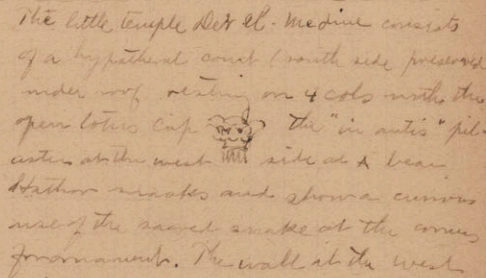 The little temple Der el-Medine consists
of a hypathral court (north side preserved
under roof resting on 4 cols with the
open lotus cap the "in antis" pil-
asters at the west side at bear
Hathor masks and show a curious
use of the sacred snake at the corners
for ornament. The wall at the west